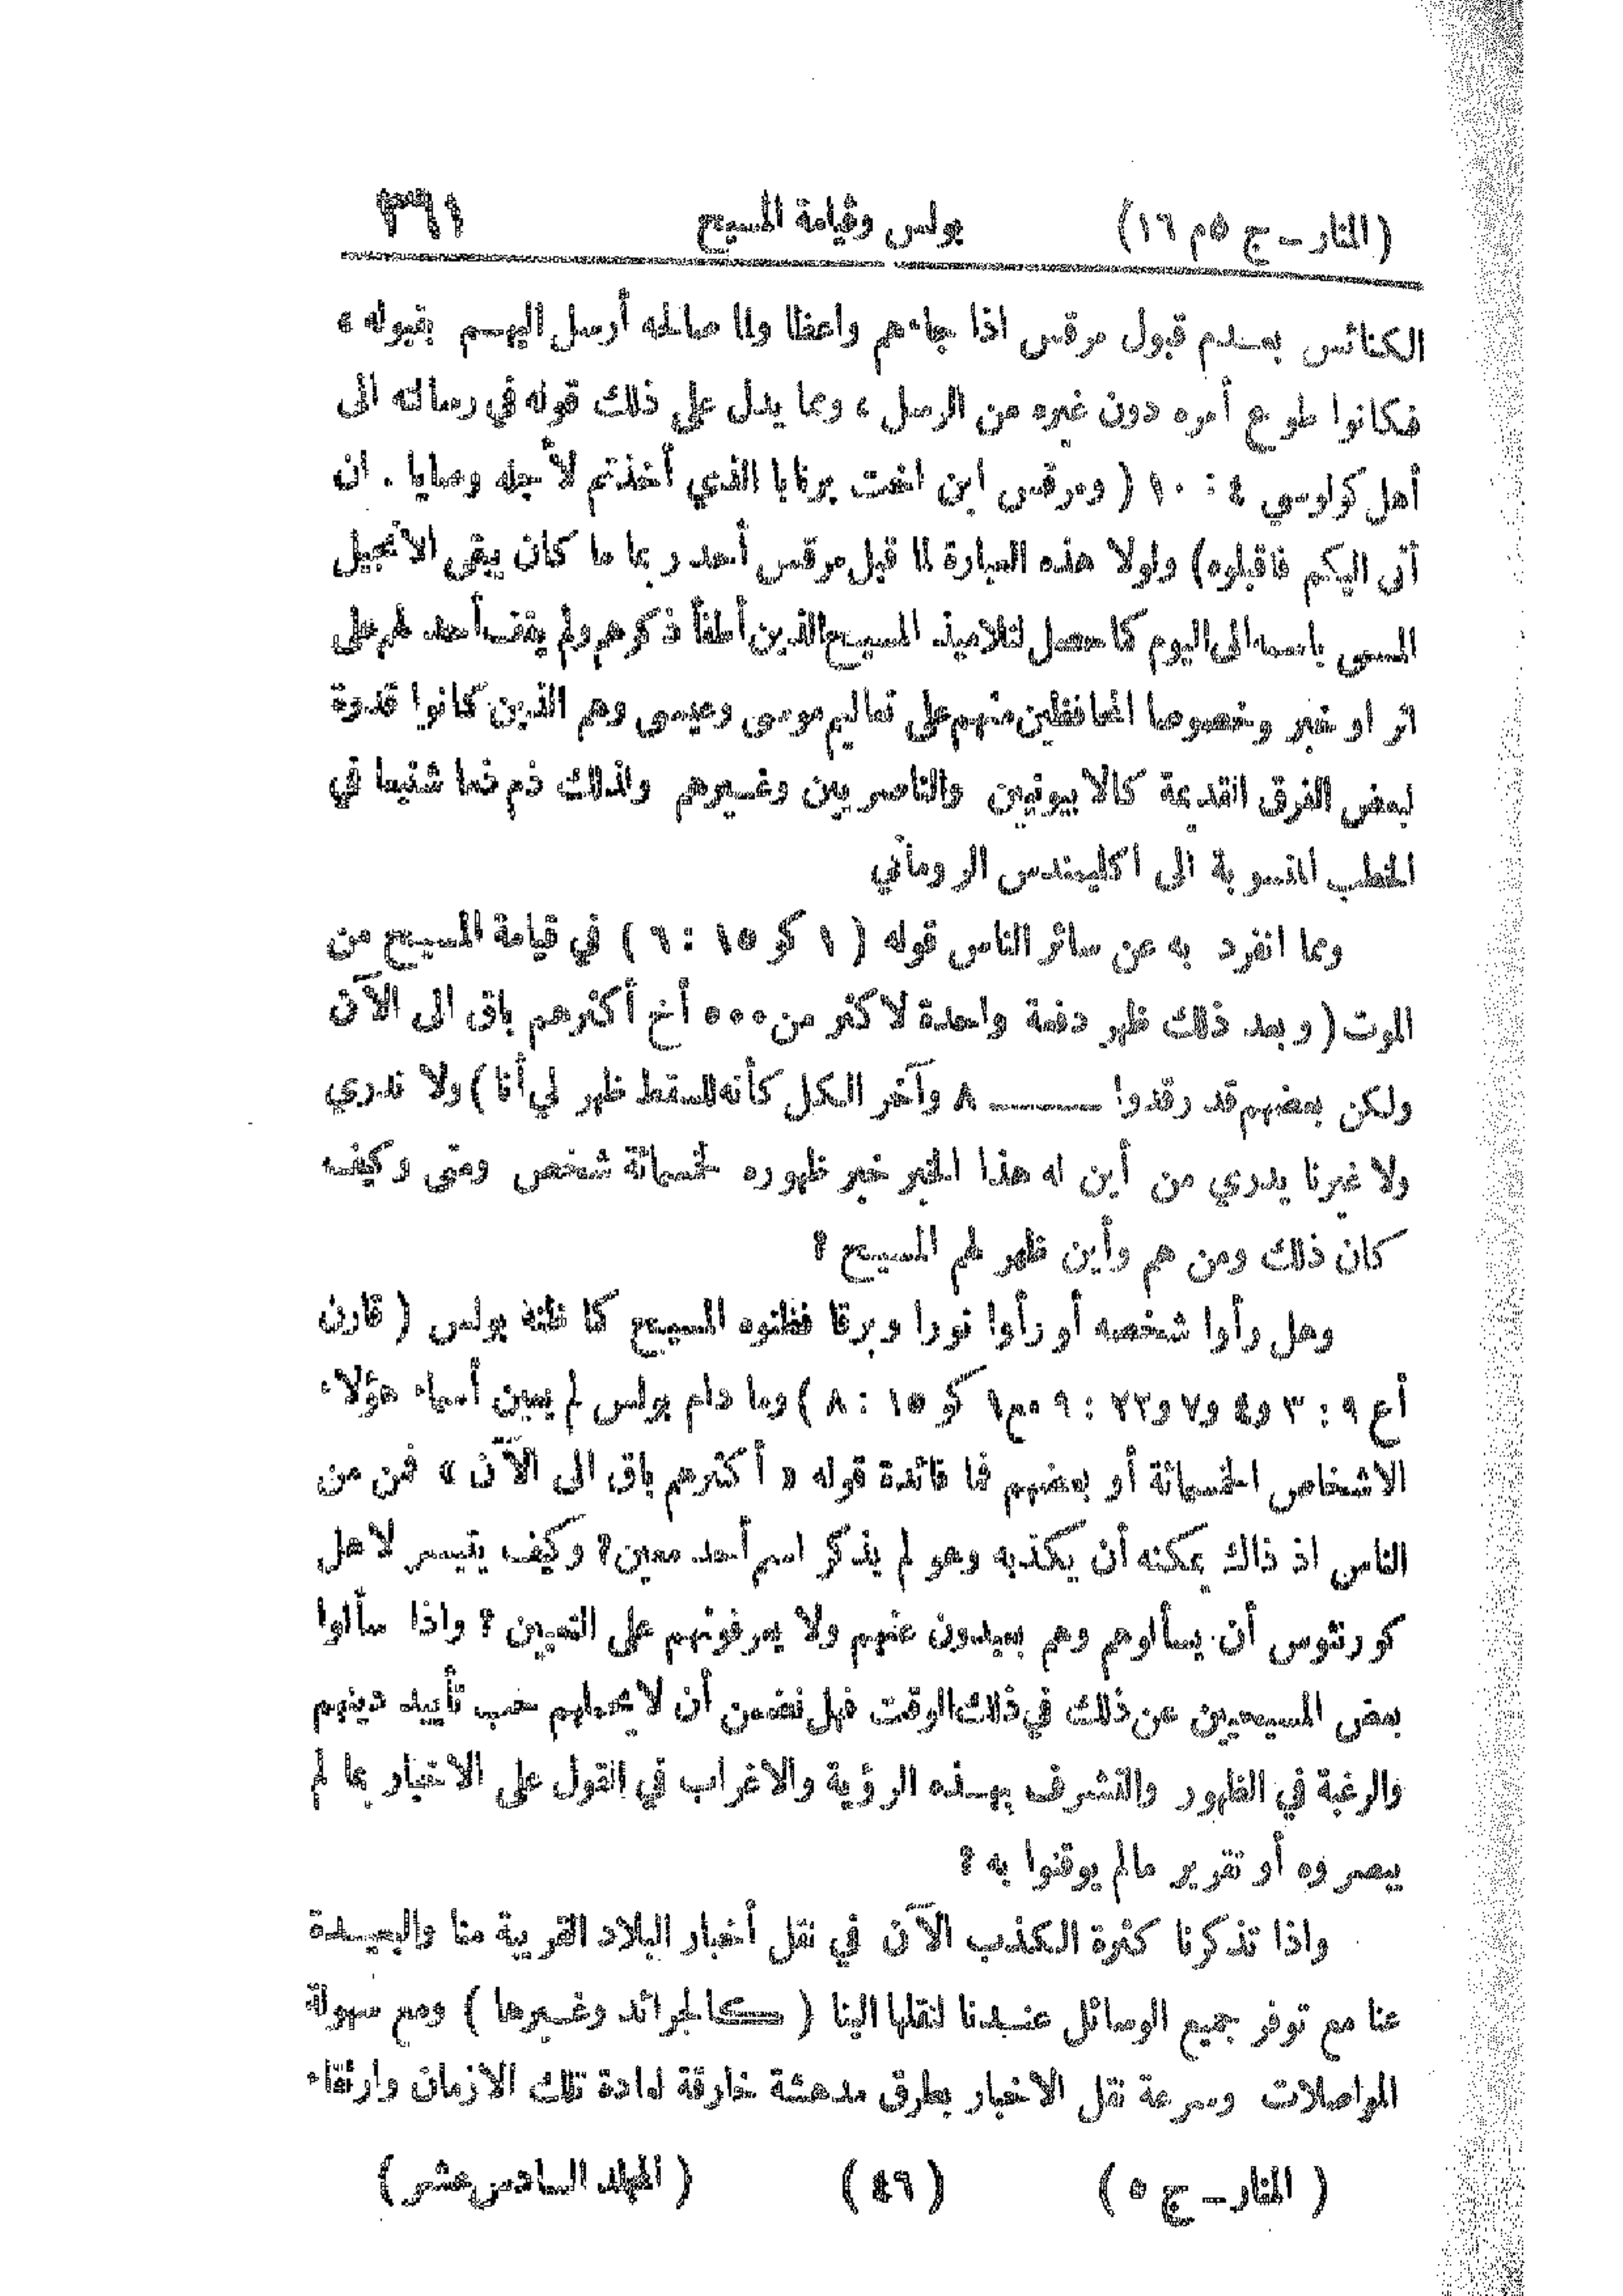 (المنار ــ ج ٥ م ١٦) بولس وقيامة المسيح ٣٦١
الكنائس بعدم قبول مرقس اذا جاءهم واعظا ولما صالحه أرسل اليهم بقبوله ،
فكانوا طوع أمره دون غيره من الرسل ، ومما يدل على ذلك قوله في رسالته الى
أهل كولوسي ٤ : ١٠ ( ومرقس ابن اخت برنابا الذي أخذتم لأجله وصايا . ان
أتى اليكم فاقبلوه) ولولا هذه العبارة لما قبل مرقس أحد ربما ما كان يبقى الانجيل
المسمى باسمه الى اليوم كما حصل لتلاميذ المسيح الذين أطفأ ذكرهم ولم يقف أحد لهم على
اثر او خبر وخصوصا المحافظين منهم على تعاليم موسى وعيسى وهم الذين كانوا قدوة
لبعض الفرق القديمة كالابيونيين والناصريين وغيرهم ولذلك ذم ذما شنيعا في
الخطب المنسوبة الى اكليمندس الروماني
ومما انفرد به عن سائر الناس قوله ( ١ كو ١٥ : ٦ ) في قيامة المسيح من
الموت ( وبعد ذلك ظهر دفعة واحدة لاكثر من ٥٠٠ أخ أكثرهم باق الى الآن
ولكن بعضهم قد رقدوا ــــــ ٨ وآخر الكل كأنه للسقط ظهر لي أنا ) ولا ندري
ولا غيرنا يدري من أين له هذا الخبر خبر ظهوره لخمسمائة شخص ومتى وكيف
كان ذلك ومن هم وأين ظهر لهم المسيح ؟
وهل رأوا شخصه أو رأوا نورا وبرقا فظنوه المسيح كما ظنه بولس ( قارن
أع ٩ : ٣ و٤ و٧ و٢٢ : ٩ مع ١ كو ١٥ : ٨ ) وما دام بولس لم يبين أسماء هؤلاء
الاشخاص الخمسمائة أو بعضهم فما فائدة قوله « أكثرهم باق الى الآن » فمن من
الناس اذ ذاك يمكنه أن يكذبه وهو لم يذكر اسم أحد معين؟ وكيف يتيسر لاهل
كورنثوس أن يسألوهم وهم بعيدون عنهم ولا يعرفونهم على التعيين ؟ واذا سألوا
بعض المسيحيين عن ذلك في ذلك الوقت فهل نضمن أن لا يحملهم حب تأييد دينهم
والرغبة في الظهور والتشرف بهذه الرؤية والاغراب في القول على الاخبار بما لم
يبصروه أو تقرير مالم يوقنوا به ؟
واذا تذكرنا كثرة الكذب الآن في نقل أخبار البلاد القريبة منا والبعيدة
عنا مع توفر جميع الوسائل عندنا لنقلها الينا ( كالجرائد وغيرها ) ومع سهولة
المواصلات وسرعة نقل الاخبار بطرق مدهشة خارقة لعادة تلك الازمان وارتقاء
( المنار ــ ج ٥ ) ( ٤٦ ) ( المجلد السادس عشر )